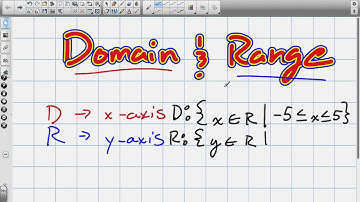 Domain & Range
D → x-axis D:{x∈R|-5≤x≤5}
R → y-axis R:{y∈R|